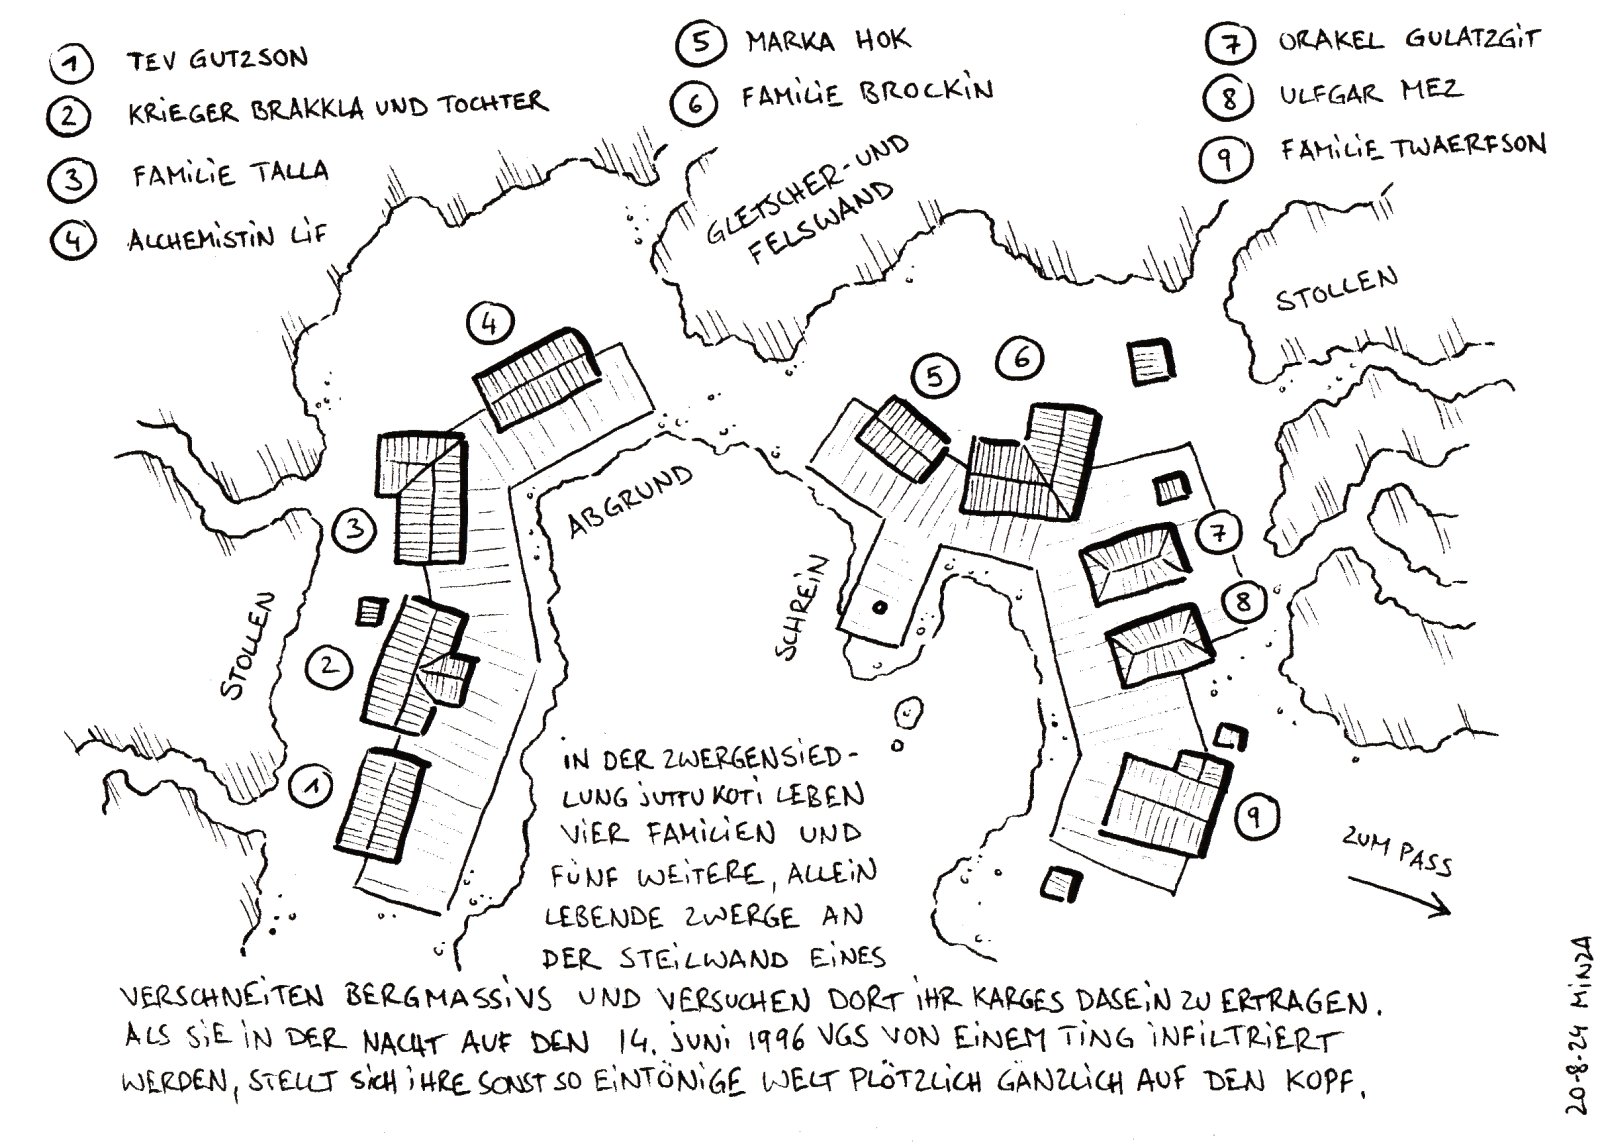 1 TEV GUTZSON
2 KRIEGER BRAKKLA UND TOCHTER
3 FAMILIE TALLA
4 ALCHEMISTIN LIF
5 MARKA HOK
6 FAMILIE BROCKIN
7 ORAKEL GULATZGIT
8 ULFGAR MEZ
9 FAMILIE TWAERFSON
GLETSCHER- UND
FELSWAND
STOLLEN
4
5
6
3
ABGRUND
7
SCHREIN
8
STOLLEN
2
1
9
ZUM PASS
IN DER ZWERGENSIED-
LUNG JUTTU KOTI LEBEN
VIER FAMILIEN UND
FÜNF WEITERE, ALLEIN
LEBENDE ZWERGE AN
DER STEILWAND EINES
VERSCHNEITEN BERGMASSIVS UND VERSUCHEN DORT IHR KARGES DASEIN ZU ERTRAGEN.
ALS SIE IN DER NACHT AUF DEN 14. JUNI 1996 VGS VON EINEM TING INFILTRIERT
WERDEN, STELLT SICH IHRE SONST SO EINTÖNIGE WELT PLÖTZLICH GÄNZLICH AUF DEN KOPF.
20-8-24 MINZA